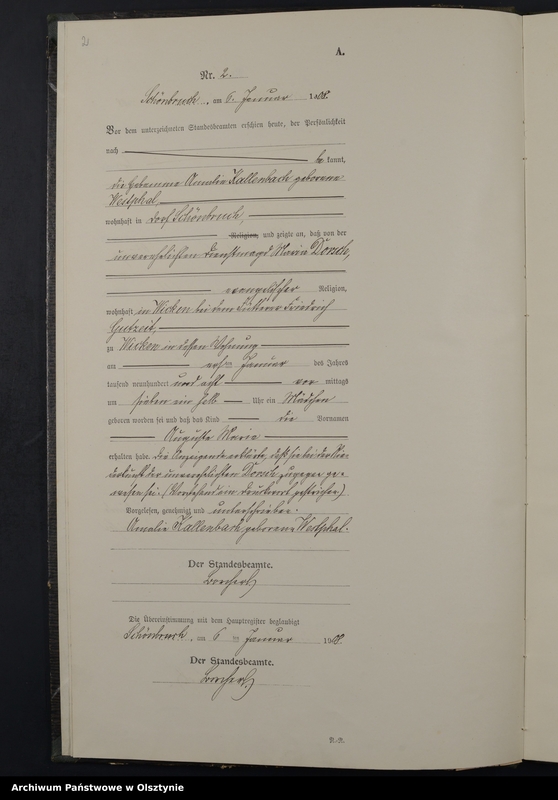 2
A.
Nr. 2.
Schönbruch, am 6. Januar 1908.
Vor dem unterzeichneten Standesbeamten erschien heute, der Persönlichkeit
nach be kannt,
die Hebamme Amalie Kallenbach geborene
Westphal,
wohnhaft in Dorf Schönbruch,
Religion, und zeigte an, daß von der
unverehelichten Dienstmagd Maria Dorsch,
evangelischer Religion,
wohnhaft in Wicken bei dem Friedrich
Gutzeit,
zu Wicken in dessen Wohnung
am Januar des Jahres
tausend neunhundert und acht vor mittags
um sieben ein halb Uhr ein Mädchen
geboren worden sei und daß das Kind die Vornamen
Auguste Maria
erhalten habe. Die Anzeigende erklärte, daß sie bei der Nie-
derkunft der unverehelichten Dorsch zugegen ge-
wesen sei. (Vorstehend ein Druckwort gestrichen.)
Vorgelesen, genehmigt und unterschrieben.
Amalie Kallenbach geborene Westphal.
Der Standesbeamte.
Die Übereinstimmung mit dem Hauptregister beglaubigt
Schönbruch, am 6 ten Januar 1908.
Der Standesbeamte.
Archiwum Państwowe w Olsztynie